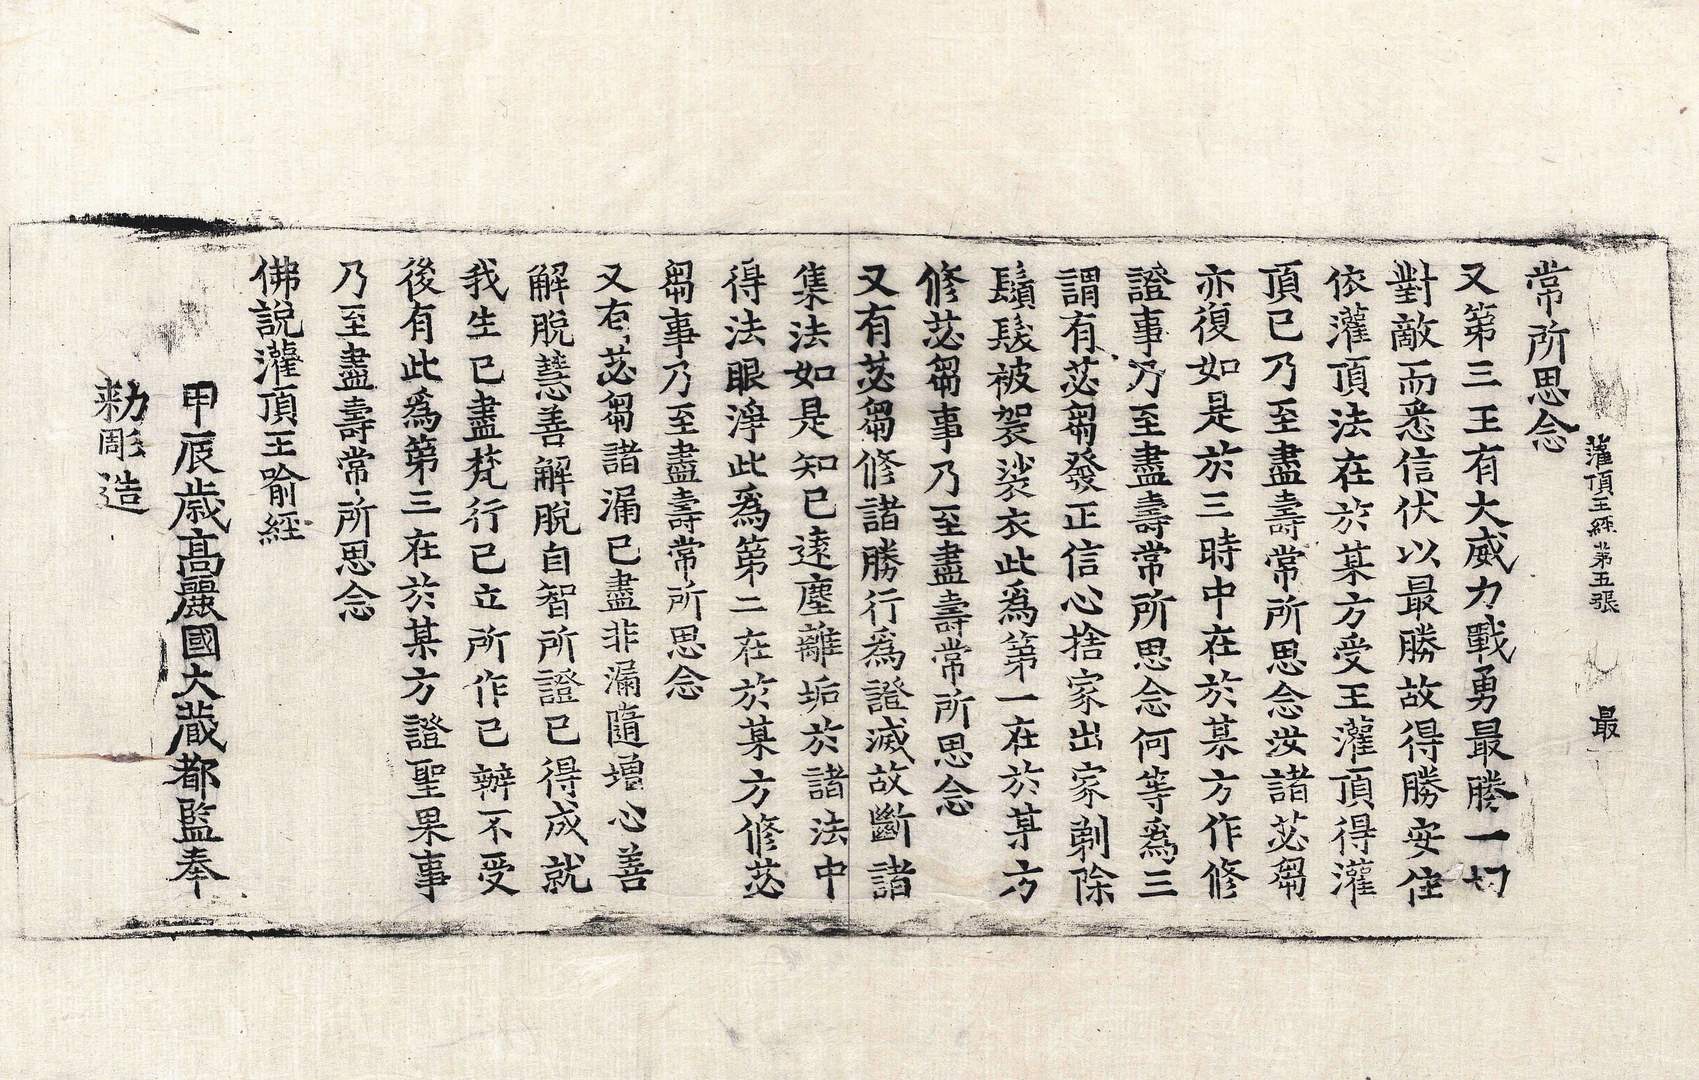 灌頂王經 第五張 最
常所思念
又第三王有大威力戰勇最勝一切
對敵而悉信伏以最勝故得勝安住
依灌頂法在於某方受王灌頂得灌
頂已乃至盡壽常所思念汝諸苾芻
亦復如是於三時中在於某方作修
證事乃至盡壽常所思念何等爲三
謂有苾芻發正信心捨家出家剃除
鬚髮被袈裟衣此爲第一在於某方
修苾芻事乃至盡壽常所思念
又有苾芻修諸勝行爲證滅故斷諸
集法如是知已遠塵離垢於諸法中
得法眼淨此爲第二在於某方修苾
芻事乃至盡壽常所思念
又有苾芻諸漏已盡非漏隨增心善
解脫慧善解脫自智所證已得成就
我生已盡梵行已立所作已辦不受
後有此爲第三在於某方證聖果事
乃至盡壽常所思念
佛說灌頂王喻經
甲辰歲高麗國大藏都監奉
勑彫造